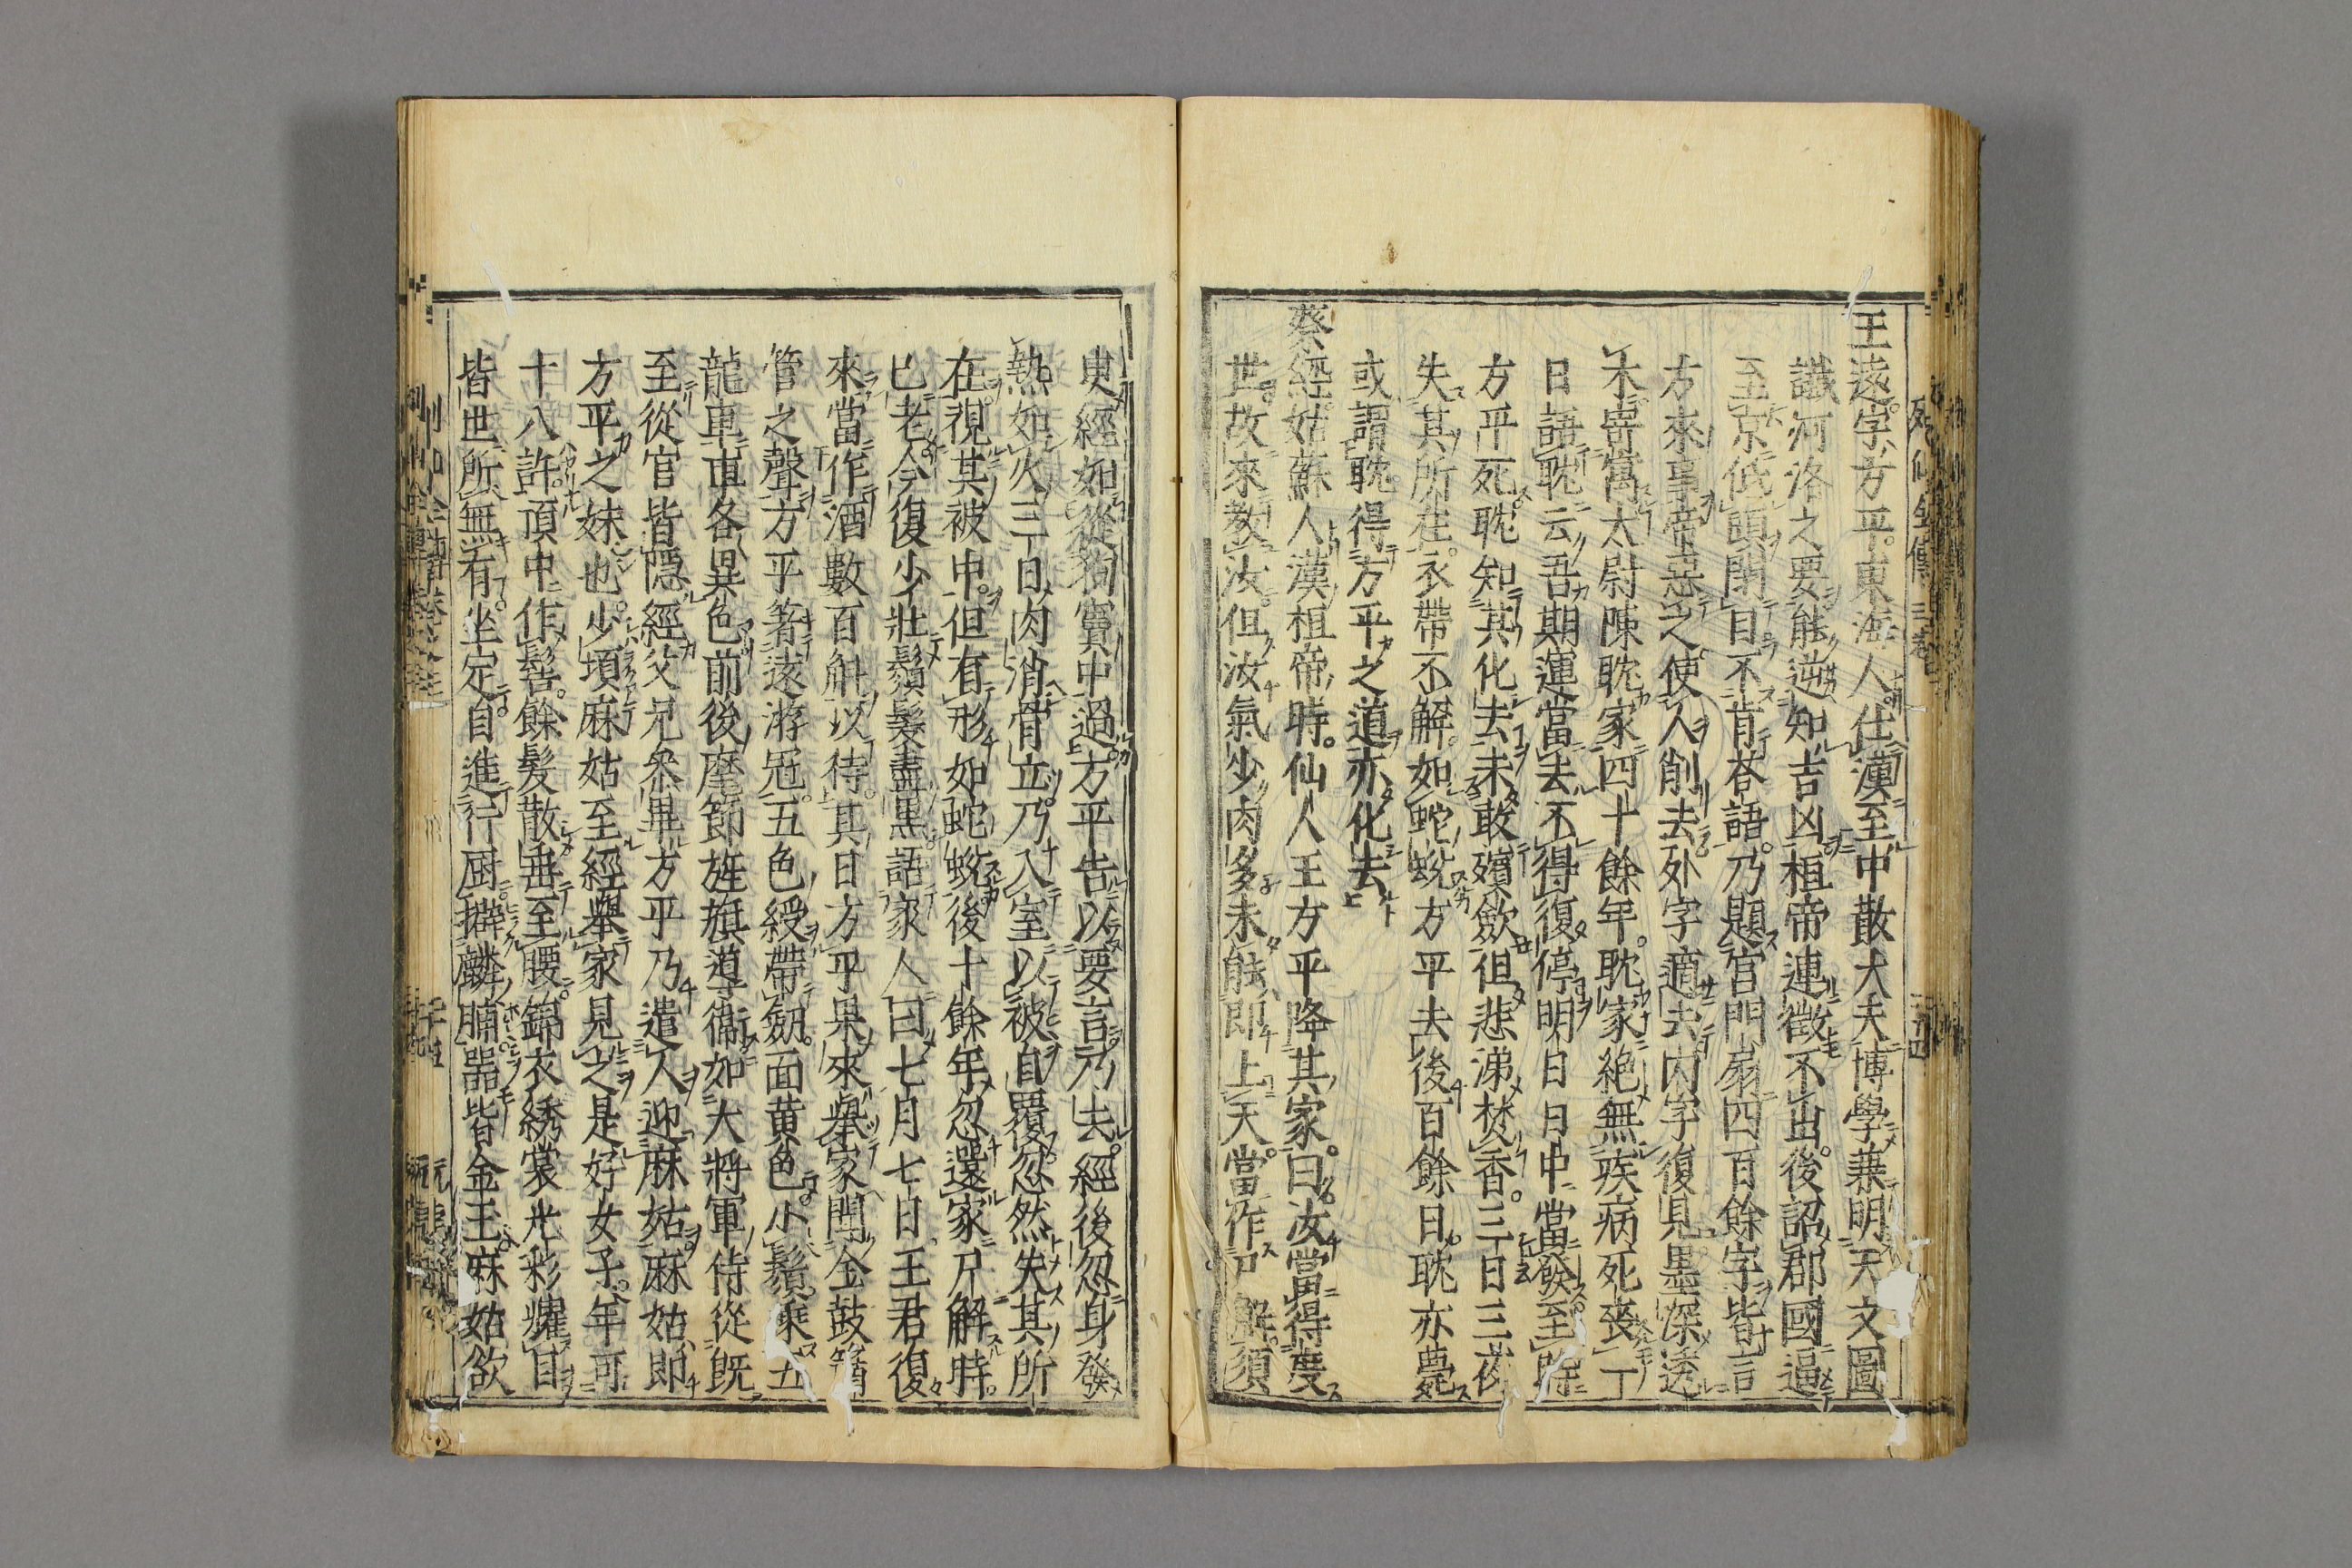 王遠字方平東海人仕漢至中散大夫博學兼明天文圖
讖河洛之要能逆知吉凶桓帝連徵不出後詔郡國逼
至京低頭閉目不肯荅語乃題宮門扇四百餘字皆言
方來事帝惡之使人削去外字適去内字復見墨深透
木寄寓太尉陳耽家四十餘年耽家絶無疾病死喪一
日語耽云吾期運當去不得復停明日日中當發至時
方平死耽知其化去未敢殯歛但悲涕焚香三日三夜
失其所在衣帶不解如蛇蛻方平去後百餘日耽亦薨
或謂耽得方平之道亦化去
蔡經姑蘇人漢桓帝時仙人王方平降其家曰汝當得度
世故來教汝但汝氣少肉多未能即上天當作尸解須
臾經如從狗竇中過方平告以要言乃去經後忽身發
熱如火三日肉消骨立乃入室以被自覆忽然失其所
在視其被中但有形如蛇蛻後十餘年忽還家尸解時
已老今復少壯鬚髮盡黒語家人曰七月七日王君復
來當作酒數百斛以待其日方平果來舉家聞金鼓簫
管之聲方平著遠游冠五色綬帶劔面黄色小鬚乘五
龍車車各異色前後麾節旌旗導衛如大將軍侍從既
至從官皆隠經父兄叅畢方平乃遣人迎麻姑麻姑即
方平之妹也少頃麻姑至經舉家見之是好女子年可
十八許頂中作髻餘髮散垂至腰錦衣綉裳光彩燿目
皆世所無有坐定自進行厨擗麟脯噐皆金玉麻姑欲